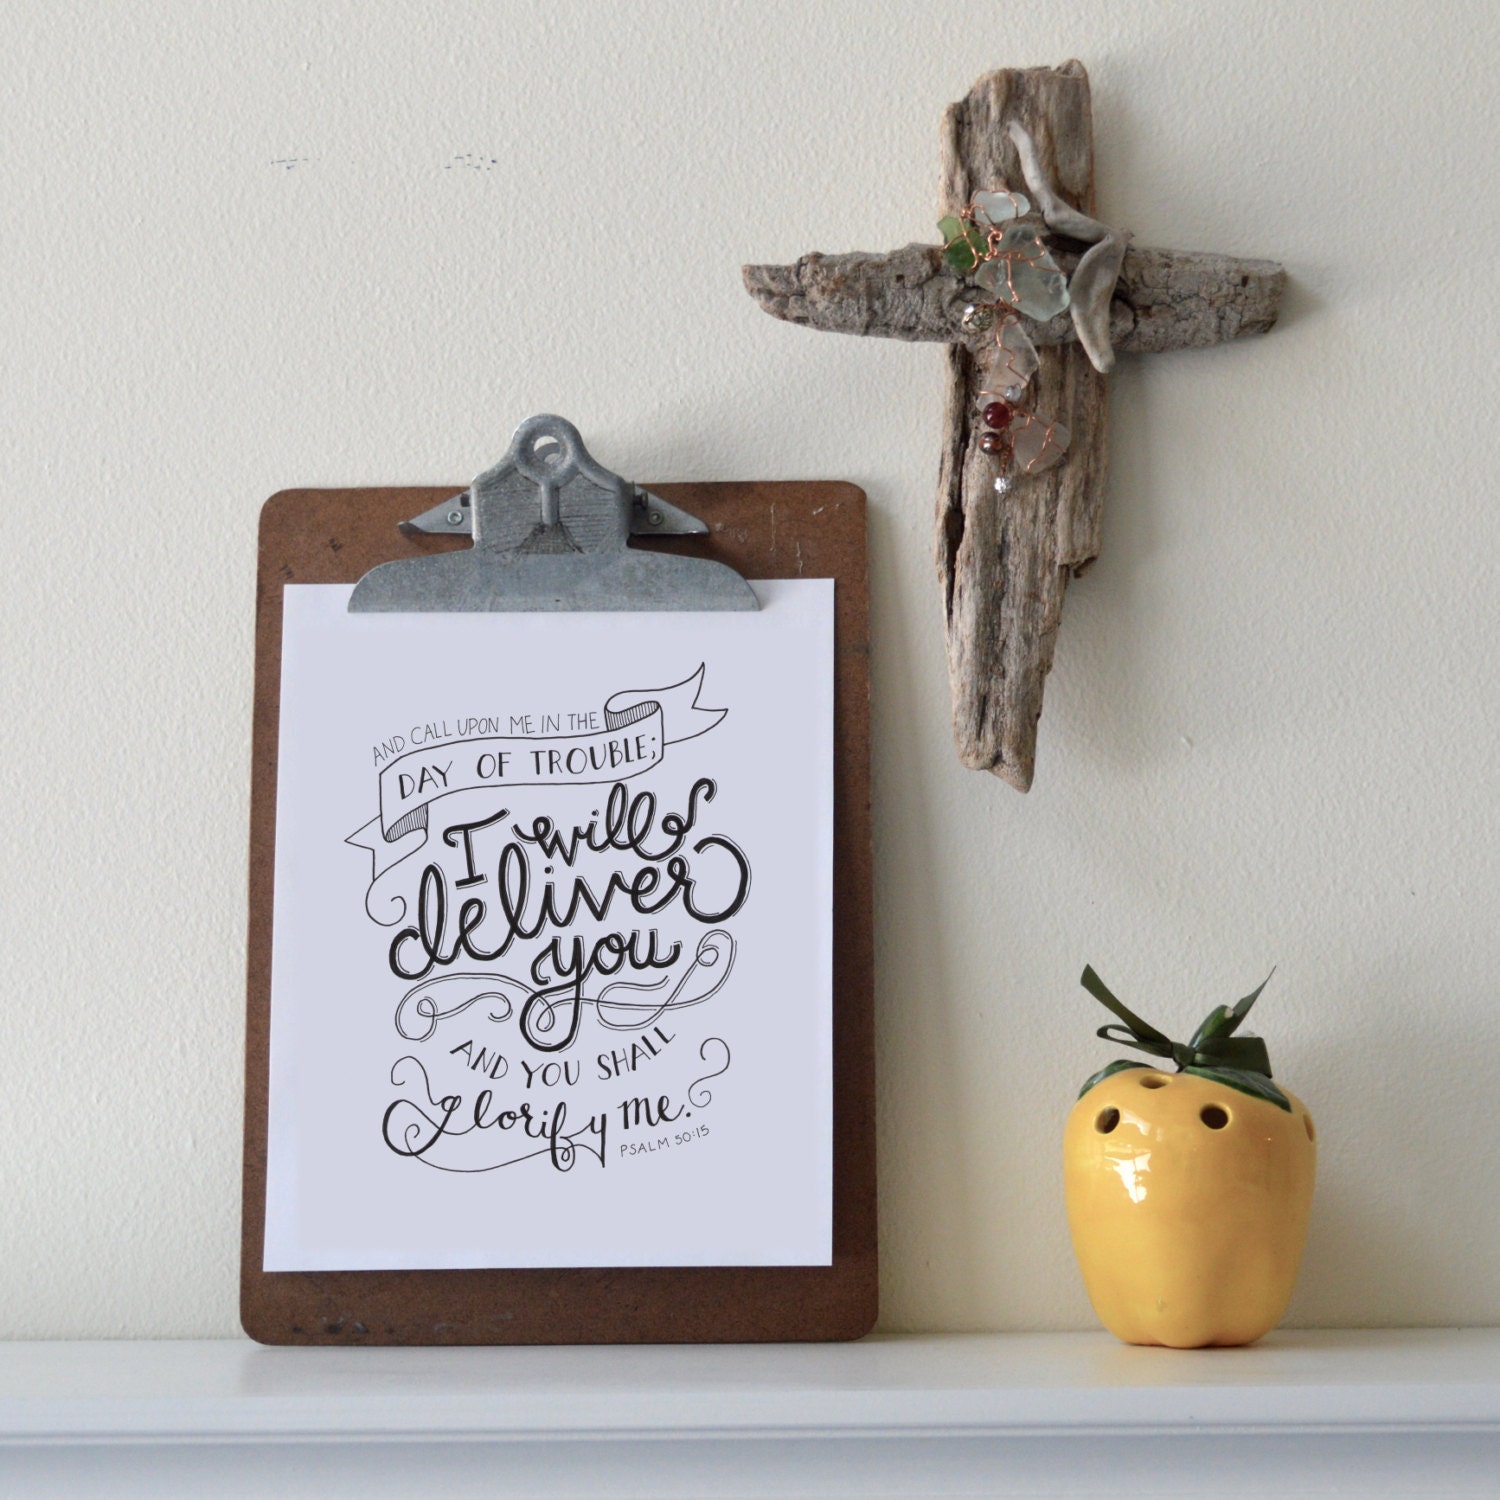 AND CALL UPON ME IN THE
DAY OF TROUBLE;
I will
deliver
you
AND YOU SHALL
Glorify me.
PSALM 50:15